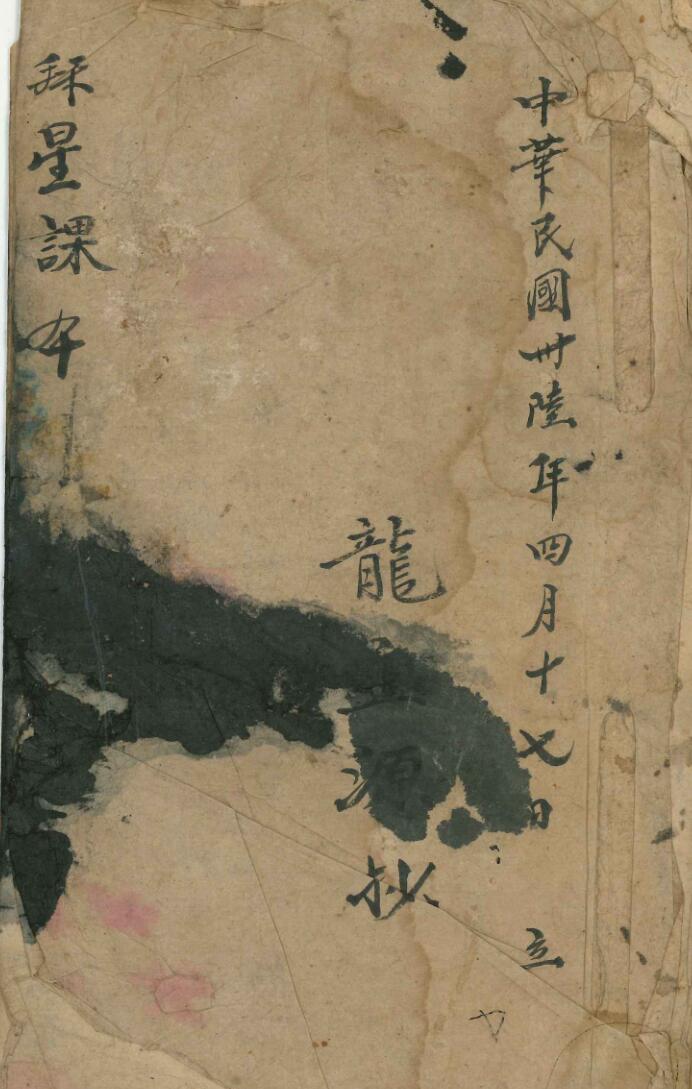 中華民國卅陸年四月十七日 立
龍玉源抄
拜星課本